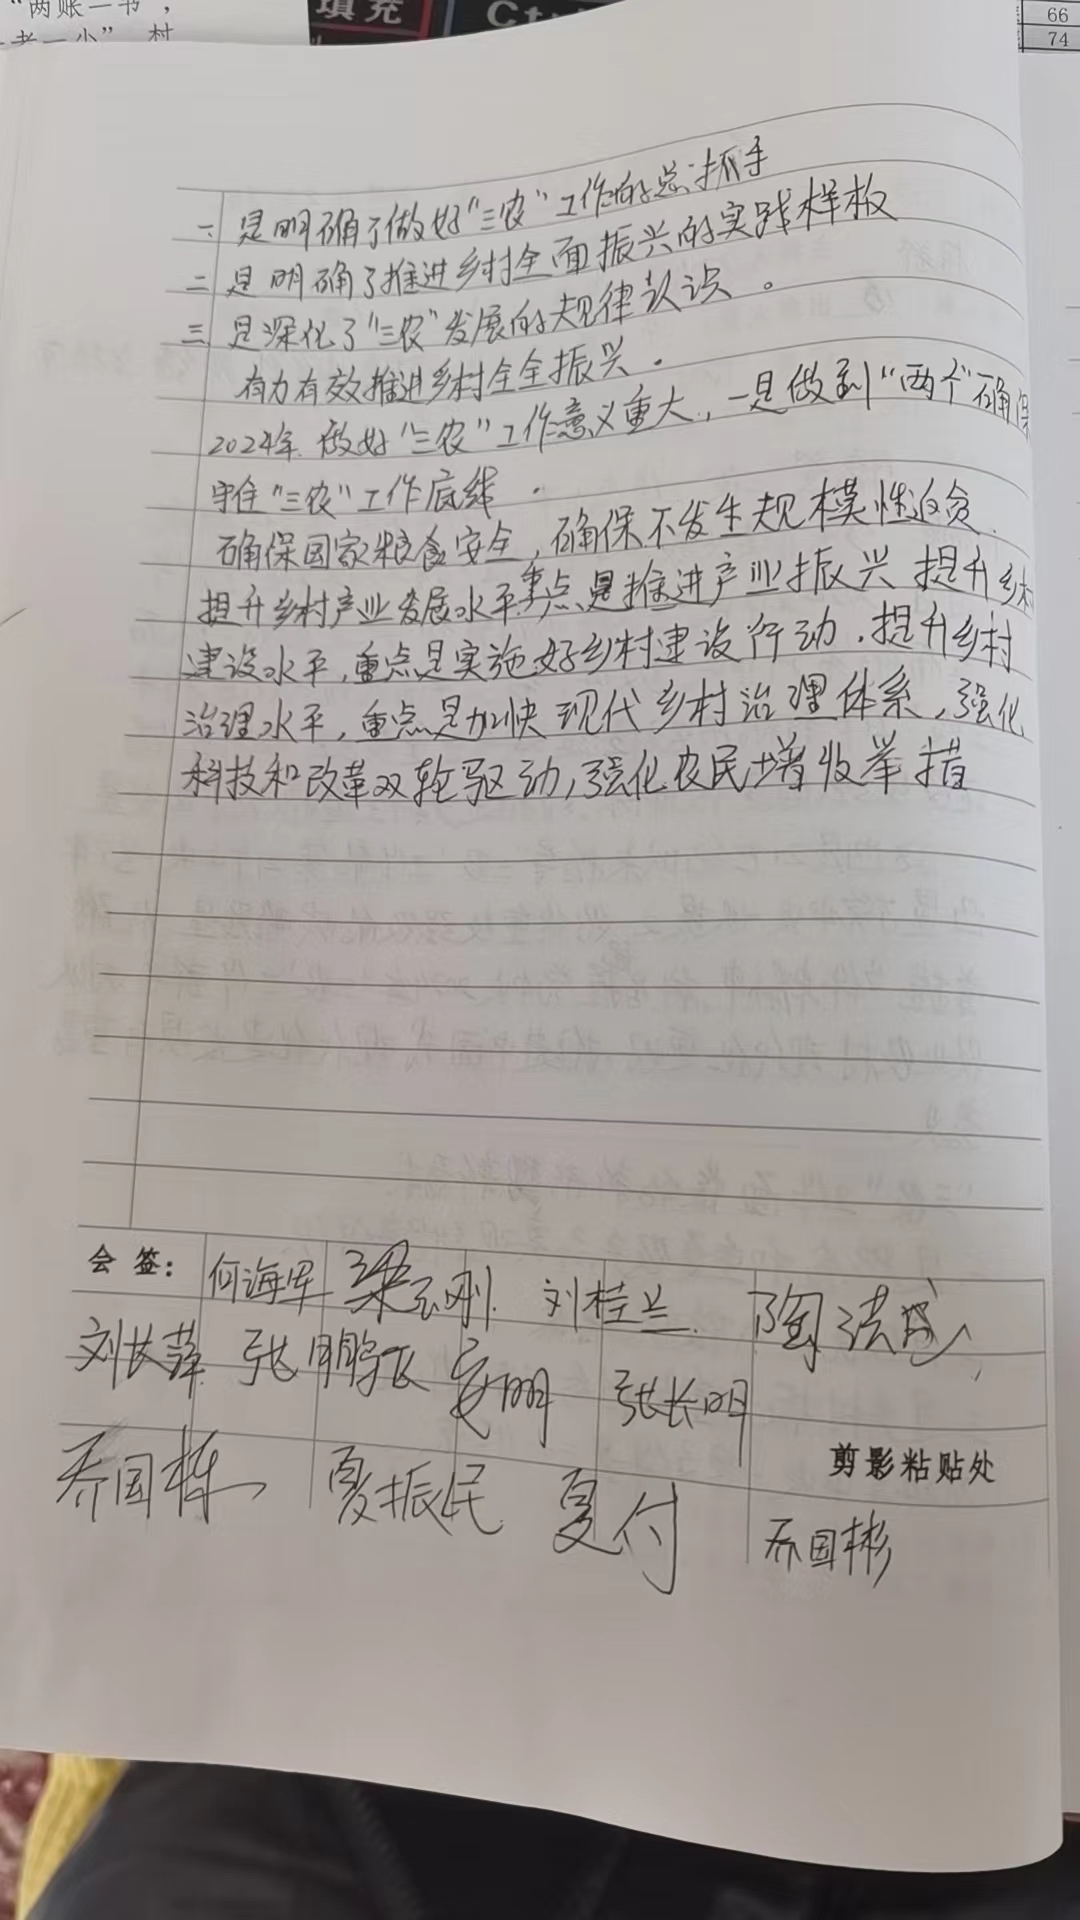 “两账一书”，
老一小”村
填充
Ct
66
74
一 是明确了做好“三农”工作的总抓手
二 是明确了推进乡村全面振兴的实践样板
三 是深化了“三农”发展的规律认识。
有力有效推进乡村全全振兴.
2024年.做好“三农”工作意义重大，一是做到“两个”确保
守住“三农”工作底线.
确保国家粮食安全，确保不发生规模性返贫.
提升乡村产业发展水平重点是推进产业振兴 提升乡村
建设水平，重点是实施好乡村建设行动.提升乡村
治理水平，重点是加快现代乡村治理体系，强化
科技和改革双轮驱动，强化农民增收举措
会签： 何海军 梁云刚. 刘桂兰. 陶洪成
刘长萍 张鹏飞 安明 张长明
剪影粘贴处
乔国栋 夏振民 夏付 乔国彬